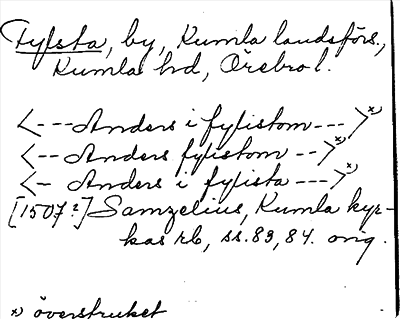 Fylsta, by, Kumla landsförs.,
Kumla hd, Örebro l.
<---Anders i fylistom--->x)
<--Anders fylistom-->x)
<- Anders i fylista --->x)
[1507?] Samzelius, Kumla kyr-
kas rb, ss. 83, 84. orig.
x) överstruket